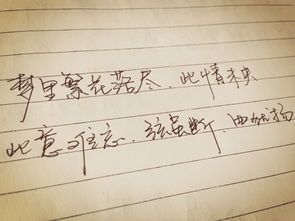 梦里繁花落尽、此情未央
此意难忘、弦虽断、曲犹扬